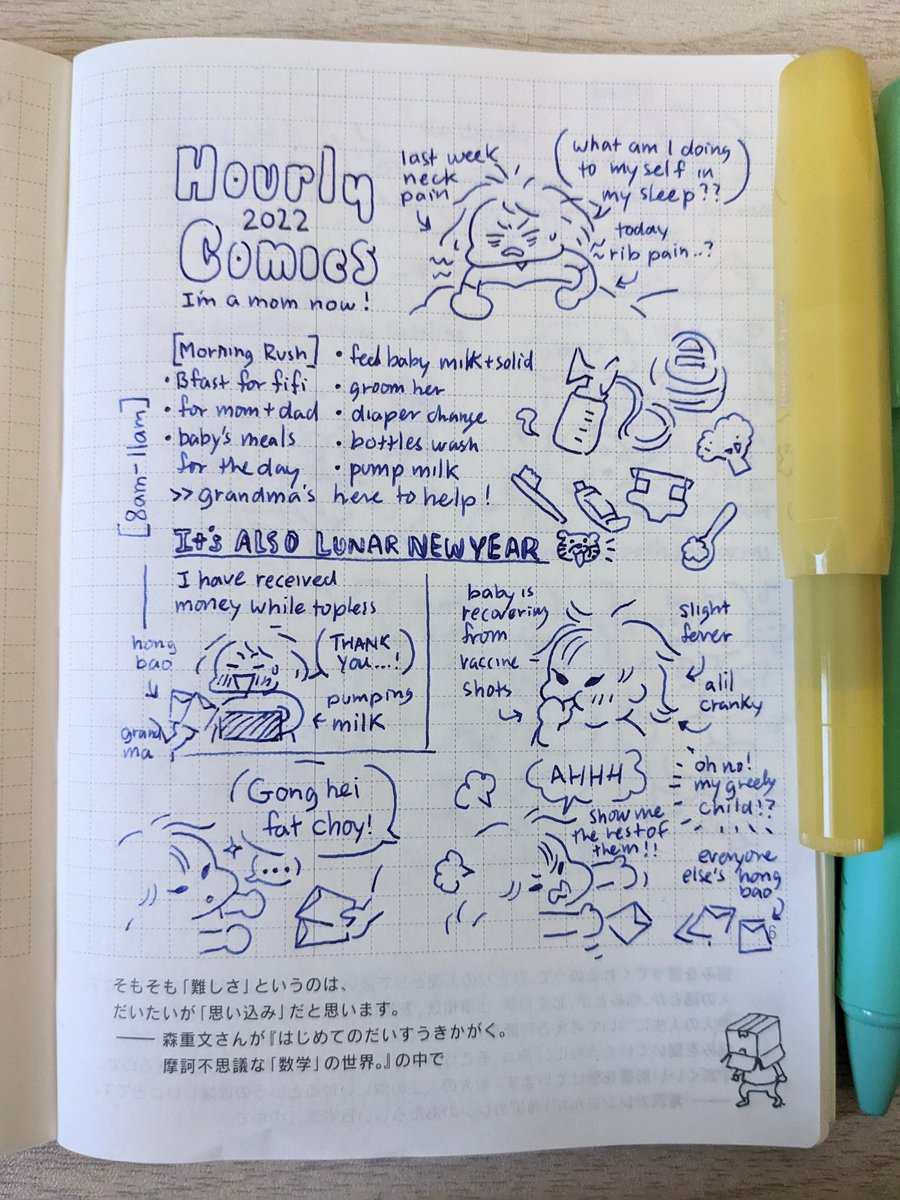 Hourly
2022
Comics
I'm a mom now!
last week
neck
pain
(what am I doing
to myself in
my sleep??)
today
rib pain..?
[8am-11am]
[Morning Rush]
• Bfast for fifi
• for mom + dad
• baby's meals
for the day
• feed baby milk+solid
• groom her
• diaper change
• bottles wash
• pump milk
>> grandma's here to help!
It's ALSO LUNAR NEW YEAR
I have received
money while topless
hong
bao
grand
ma
(THANK
YOU...!)
pumping
milk
baby is
recovering
from
vaccine
shots
slight
fever
alil
cranky
Gong hei
fat choy!
(...)
AHHH
show me
the rest of
them!!
oh no!
my greedy
child!?
everyone
else's hong
bao
6
そもそも「難しさ」というのは、
だいたいが「思い込み」だと思います。
—— 森重文さんが『はじめてのだいすうきかがく。
摩訶不思議な「数学」の世界。』の中で